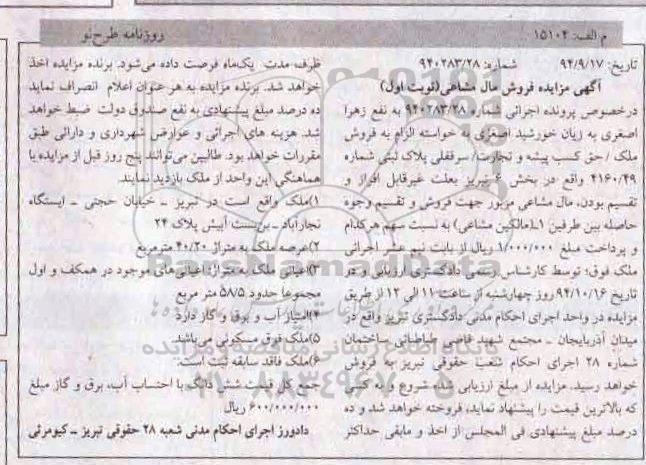 م الف: ۱۵۱۰۴
روزنامه طرح نو
تاریخ: ۹۴/۹/۱۷ شماره: ۹۴۰۲۸۳/۲۸
آگهی مزایده فروش مال مشاعی(نوبت اول)
درخصوص پرونده اجرائی شماره ۹۴۰۲۸۳/۲۸ به نفع زهرا
اصغری به زیان خورشید اصغری به خواسته الزام به فروش
ملک /حق کسب پیشه و تجارت/ سرقفلی پلاک ثبتی شماره
۴۱۶۰/۴۹ واقع در بخش ۶ تبریز بعلت غیرقابل افراز و
تقسیم بودن، مال مشاعی مزبور جهت فروش و تقسیم وجوه
حاصله بین طرفین ۱ـ(مالکین مشاعی) به نسبت سهم هرکدام
و پرداخت مبلغ ۱/۰۰۰/۰۰۰ ریال از بابت نیم عشر اجرائی
ملک فوق؛ توسط کارشناس رسمی دادگستری ارزیابی و در
تاریخ ۹۴/۱۰/۱۶ روز چهارشنبه از ساعت ۱۱ الی ۱۲ از طریق
مزایده در واحد اجرای احکام مدنی دادگستری تبریز واقع در
میدان آذربایجان ـ مجتمع شهید قاضی طباطبائی ساختمان
شماره ۲۸ اجرای احکام شعب حقوقی تبریز به فروش
خواهد رسید. مزایده از مبلغ ارزیابی شده شروع و به کسی
که بالاترین قیمت را پیشنهاد نماید، فروخته خواهد شد و ده
درصد مبلغ پیشنهادی فی المجلس از اخذ و مابقی حداکثر
ظرف مدت یک‌ماه فرصت داده می‌شود. برنده مزایده اخذ
خواهد شد. برنده مزایده به هر عنوان اعلام انصراف نماید
ده درصد مبلغ پیشنهادی به نفع صندوق دولت ضبط خواهد
شد. هزینه های اجرائی و عوارض شهرداری و دارائی طبق
مقررات خواهد بود. طالبین می‌توانند پنج روز قبل از مزایده با
هماهنگی این واحد از ملک بازدید نمایند.
۱)ملک واقع است در تبریز ـ خیابان حجتی ـ ایستگاه
نجارآباد ـ بن‌بست آبیش پلاک ۲۴
۲)عرصه ملک به متراژ ۴۰/۲۰ مترمربع
۳)اعیانی ملک به متراژ: اعیانی‌های موجود در همکف و اول
مجموعا حدود ۵۸/۵ متر مربع
۴)امتیاز آب و برق و گاز دارد
۵)ملک فوق مسکونی می‌باشد.
۶)ملک فاقد سابقه ثبت است.
جمع کل قیمت شش دانگ با احتساب آب، برق و گاز مبلغ
۶۰۰/۰۰۰/۰۰۰ ریال
دادورز اجرای احکام مدنی شعبه ۲۸ حقوقی تبریز ـ کیومرثی
ParsNamadData
۰۲۱-۸۸۳۴۹۶۷۰